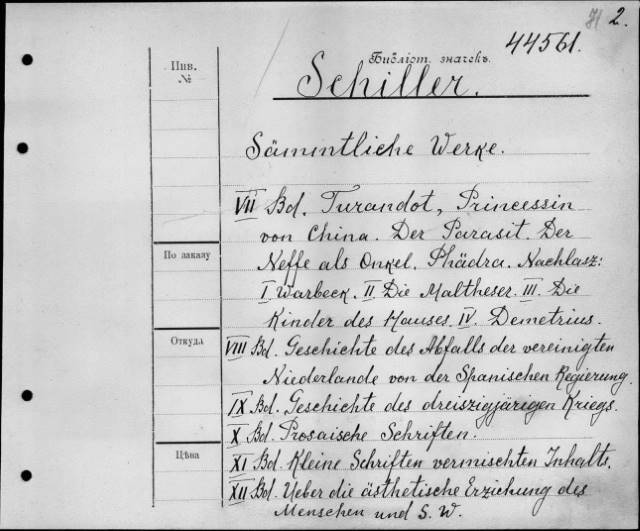 2.
44561.
Библіот. значекъ
Инв.
№
Schiller.
Sämmtliche Werke.
VII Bd. Turandot, Princessin
von China. Der Parasit. Der
По заказу
Neffe als Onkel. Phädra. Nachlasz:
I Warbeck. II. Die Maltheser. III. Die
Kinder des Hauses. IV. Demetrius.
Откуда
VIII Bd. Geschichte des Abfalls der vereinigten
Niederlande von der Spanischen Regierung.
IX Bd. Geschichte des dreiszigjärigen Kriegs.
X Bd. Prosaische Schriften.
Цѣна
XI Bd. Kleine Schriften vermischten Inhalts.
XII Bd. Ueber die ästhetische Erziehung des
Menschen und S. W.